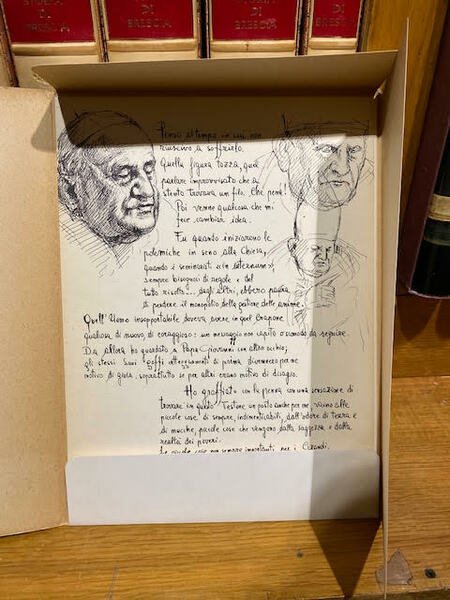 STORIA
DI
BRESCIA
DI
BRESCIA
DI
BRESCIA
DI
BRESCIA
Penso al tempo in cui non
riuscivo a soffrirlo.
Quella figura tozza, quel
parlare improvvisato che a
stento trovava un filo. Che pena!
Poi venne qualcosa che mi
fece cambiar idea.
Fu quando iniziarono le
polemiche in seno alla Chiesa,
quando i seminaristi «in aeternum»,
sempre bisognosi di regole e del
tutto risolto... dagli altri, ebbero paura
di perdere il monopolio della gestione delle anime.
Quell'Uomo insopportabile doveva avere in quel Crapone
qualcosa di nuovo, di coraggioso: un messaggio non capito o scomodo da seguire.
Da allora ho guardato a Papa Giovanni con altro occhio;
gli stessi suoi goffi atteggiamenti di prima divennero per me
motivo di gioia, soprattutto se per altri erano motivo di disagio.
Ho graffiato con la penna con una sensazione di
trovare in questo Testone un posto anche per me, vicino alle
piccole cose di sempre, indimenticabili, dall'odore di terra e
di mucche, piccole cose che vengono dalla saggezza e dalla
realtà dei poveri.
Le piccole cose non sempre importanti per i Grandi.